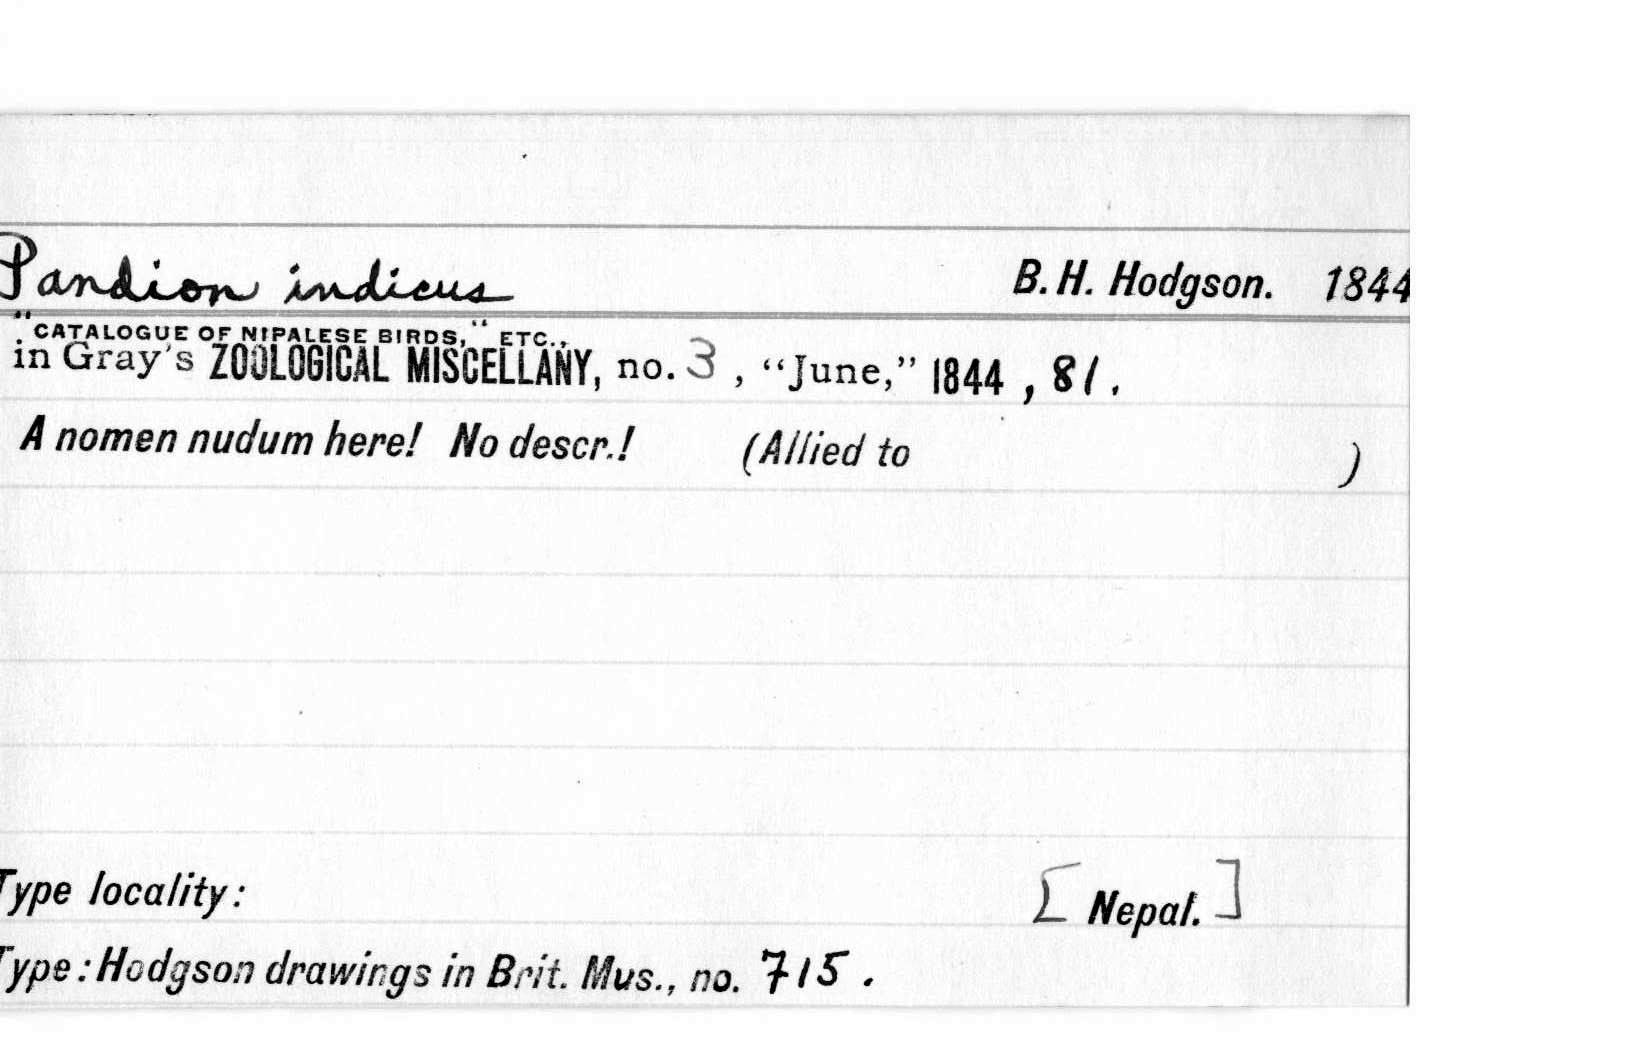 Pandion indicus B. H. Hodgson. 1844
"CATALOGUE OF NIPALESE BIRDS," ETC.,
in Gray's ZOOLOGICAL MISCELLANY, no. 3, "June," 1844, 81.
A nomen nudum here! No descr.! (Allied to )
Type locality: [Nepal.]
Type: Hodgson drawings in Brit. Mus., no. 715.